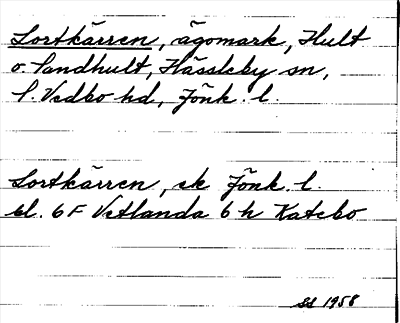 Lortkärren, ägomark, Hult
o. Sandhult, Hässleby sn,
S. Vedbo hd, Jönk. l.
Lortkärren, ek Jönk. l.
bl. 6F Vetlanda 6h Katebo
SS 1958